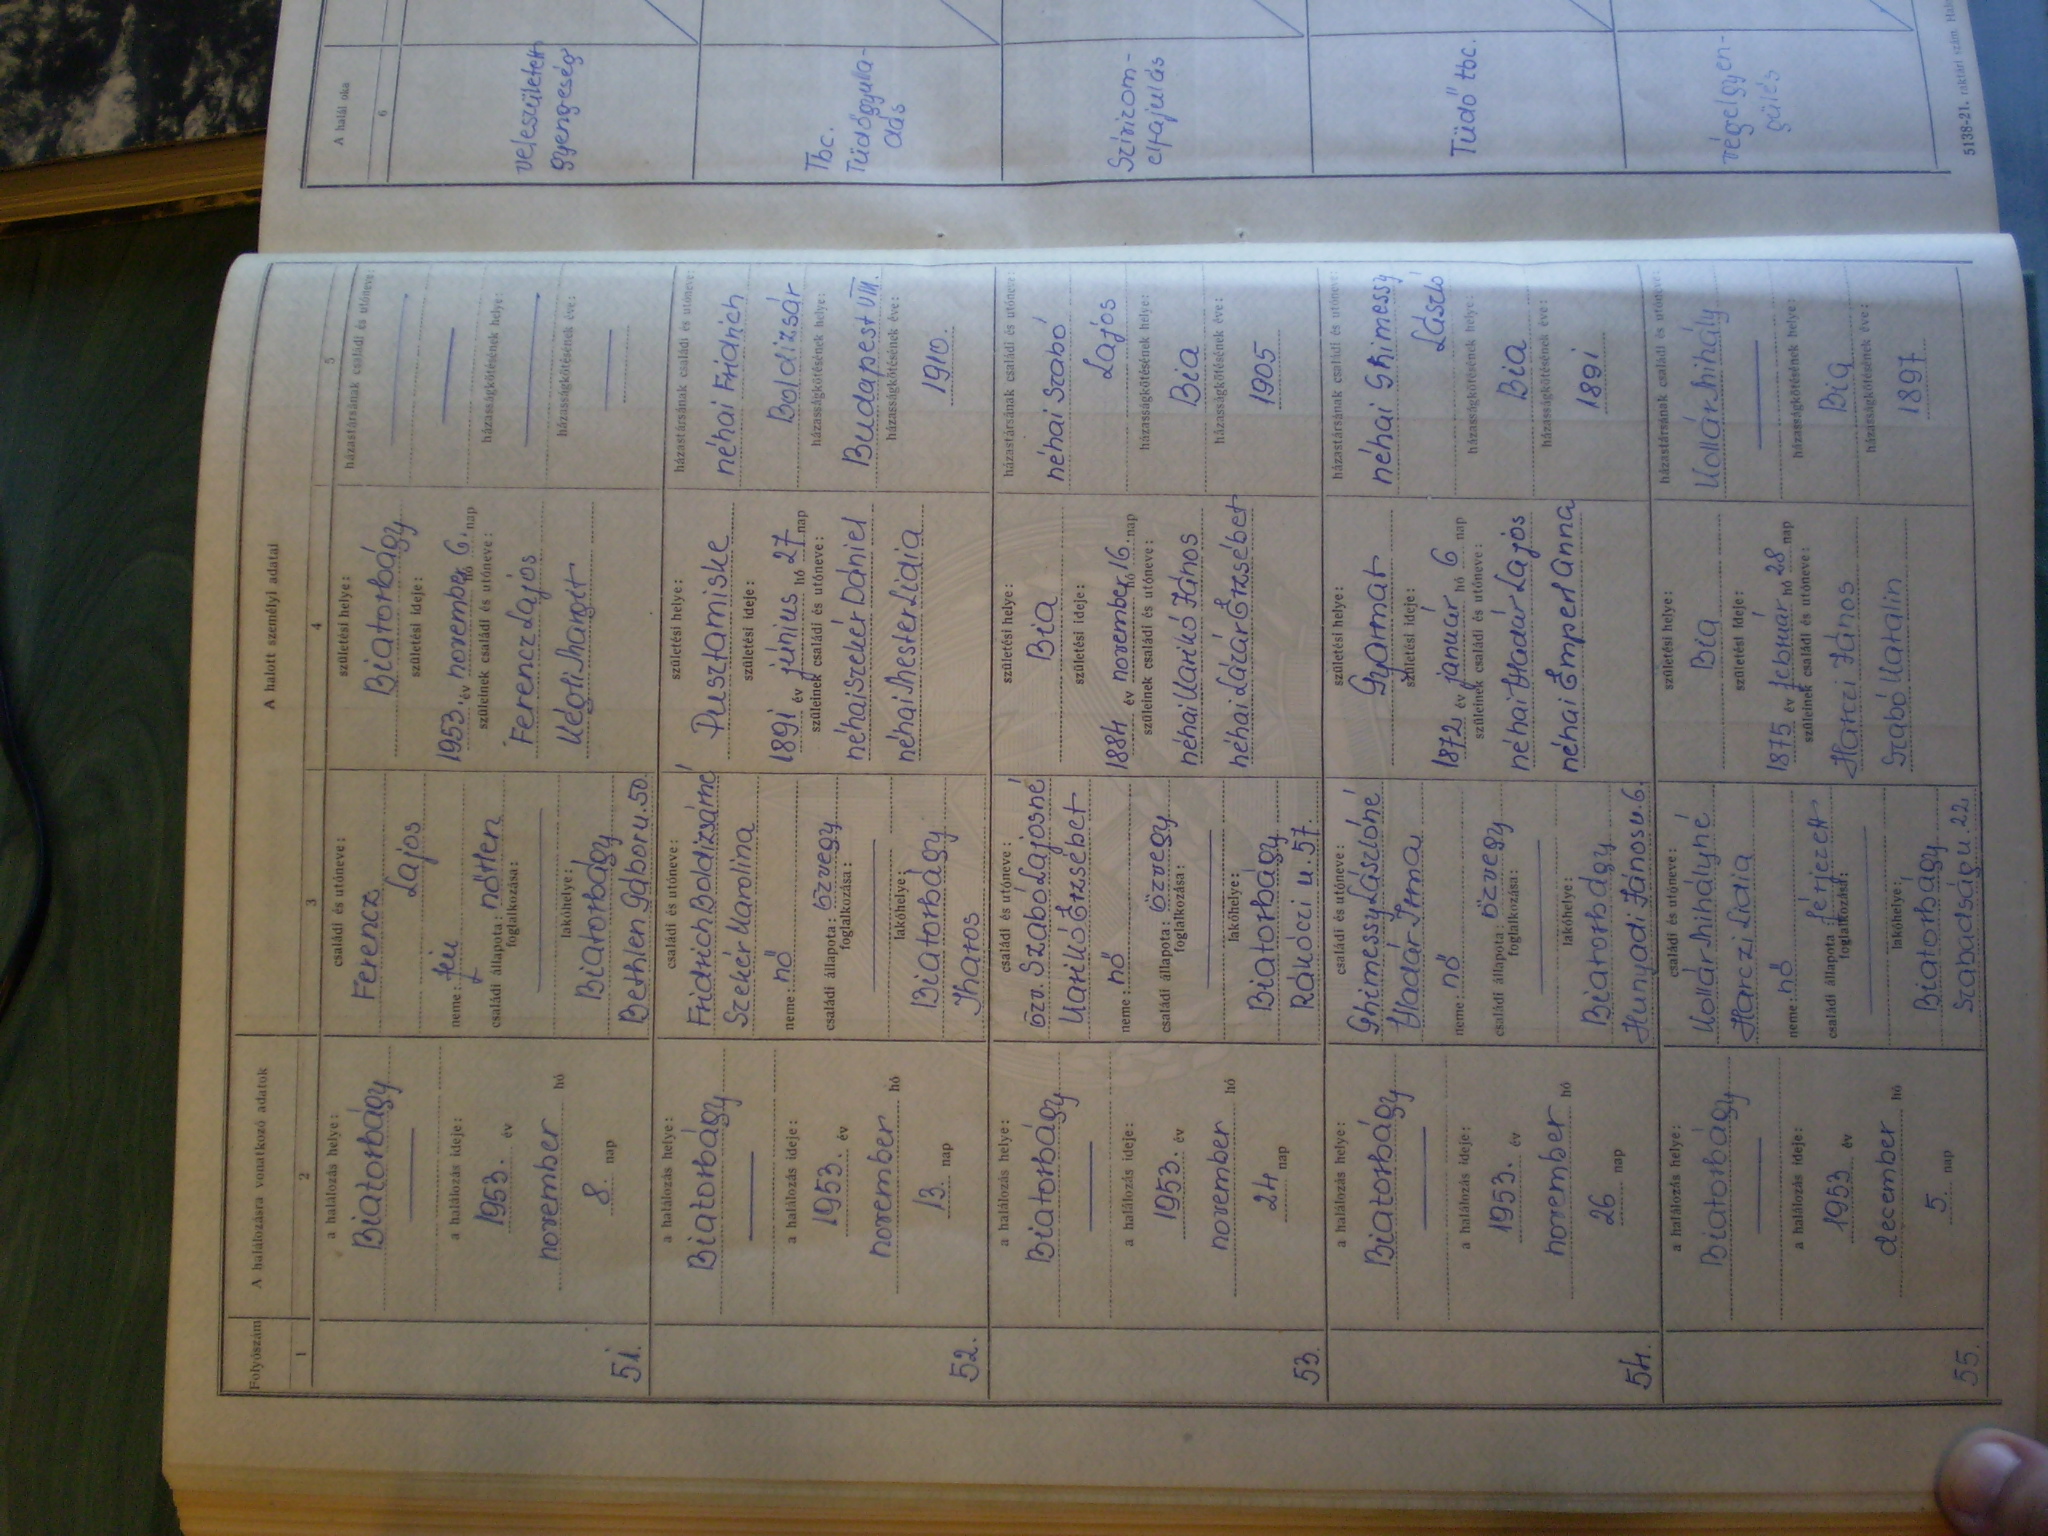 Folyószám
A halálozásra vonatkozó adatok
A halott személyi adatai
A halál oka
1
2
3
4
5
6
51.
a halálozás helye:
Biatorbágy
a halálozás ideje:
1953. év
november hó
8. nap
családi és utóneve:
Ferencz
Lajos
neme: fiu
családi állapota: nőtlen
foglalkozása:
lakóhelye:
Biatorbágy
Bethlen Gábor u. 50
születési helye:
Biatorbágy
születési ideje:
1953. év november hó 6. nap
szüleinek családi és utóneve:
Ferencz Lajos
Margit
házastársának családi és utóneve:
házasságkötésének helye:
házasságkötésének éve:
veleszületett
gyengeség
52.
a halálozás helye:
Biatorbágy
a halálozás ideje:
1953. év
november hó
13. nap
családi és utóneve:
Fridrich Boldizsárné
Szekér Karolina
neme: nő
családi állapota: özvegy
foglalkozása:
lakóhelye:
Biatorbágy
Iharos
születési helye:
Pusztamiske
születési ideje:
1891 év június hó 27 nap
szüleinek családi és utóneve:
néhai Szekér Dániel
néhai Mester Lidia
házastársának családi és utóneve:
néhai Fridrich
Boldizsár
házasságkötésének helye:
Budapest VIII.
házasságkötésének éve:
1910.
Tbc.
Tüdőgyula-
dás
53.
a halálozás helye:
Biatorbágy
a halálozás ideje:
1953. év
november hó
24 nap
családi és utóneve:
özv. Szabó Lajosné
Karikó Erzsébet
neme: nő
családi állapota: özvegy
foglalkozása:
lakóhelye:
Biatorbágy
Rákóczi u. 57.
születési helye:
Bia
születési ideje:
1884 év november hó 16. nap
szüleinek családi és utóneve:
néhai Karikó János
néhai Lázár Erzsébet
házastársának családi és utóneve:
néhai Szabó
Lajos
házasságkötésének helye:
Bia
házasságkötésének éve:
1905
Szívizom-
elfajulás
54.
a halálozás helye:
Biatorbágy
a halálozás ideje:
1953. év
november hó
26 nap
családi és utóneve:
Ghimessy Lászlóné
Madár Irma
neme: nő
családi állapota: özvegy
foglalkozása:
lakóhelye:
Biatorbágy
Hunyadi János u. 6.
születési helye:
Gyarmat
születési ideje:
1872 év január hó 6 nap
szüleinek családi és utóneve:
néhai Madár Lajos
néhai Emperl Anna
házastársának családi és utóneve:
néhai Ghimessy
László
házasságkötésének helye:
Bia
házasságkötésének éve:
1891
Tüdő tbc.
55.
a halálozás helye:
Biatorbágy
a halálozás ideje:
1953 év
december hó
5. nap
családi és utóneve:
Kollár Mihályné
Hanczi Lidia
neme: nő
családi állapota: férjezett
foglalkozása:
lakóhelye:
Biatorbágy
Szabadság u. 22
születési helye:
Bia
születési ideje:
1875 év február hó 28 nap
szüleinek családi és utóneve:
Hanczi János
Szabó Katalin
házastársának családi és utóneve:
Kollár Mihály
házasságkötésének helye:
Bia
házasságkötésének éve:
1897
végelgyen-
gülés
5138-21. raktári szám.